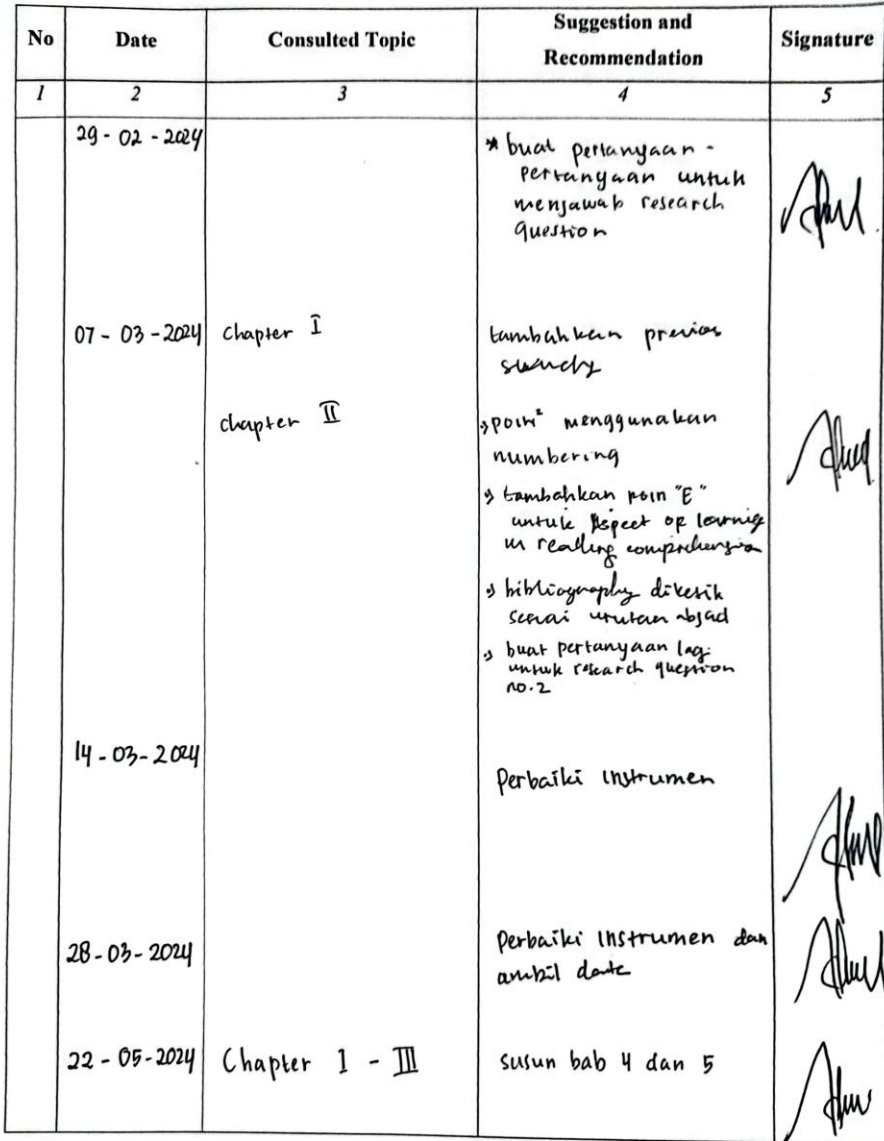 No Date Consulted Topic Suggestion and Recommendation Signature
1 2 3 4 5
29-02-2024
* buat pertanyaan-
pertanyaan untuk
menjawab research
question
07-03-2024 chapter I tambahkan previos
study
chapter II
→ poin² menggunakan
numbering
→ tambahkan poin "E"
untuk Aspect of learnig
in reading comprehension
→ bibliography diketik
sesuai urutan abjad
→ buat pertanyaan lagi
untuk research question
no.2
14-03-2024
Perbaiki instrumen
28-03-2024 Perbaiki instrumen dan
ambil data
22-05-2024 Chapter I - III susun bab 4 dan 5